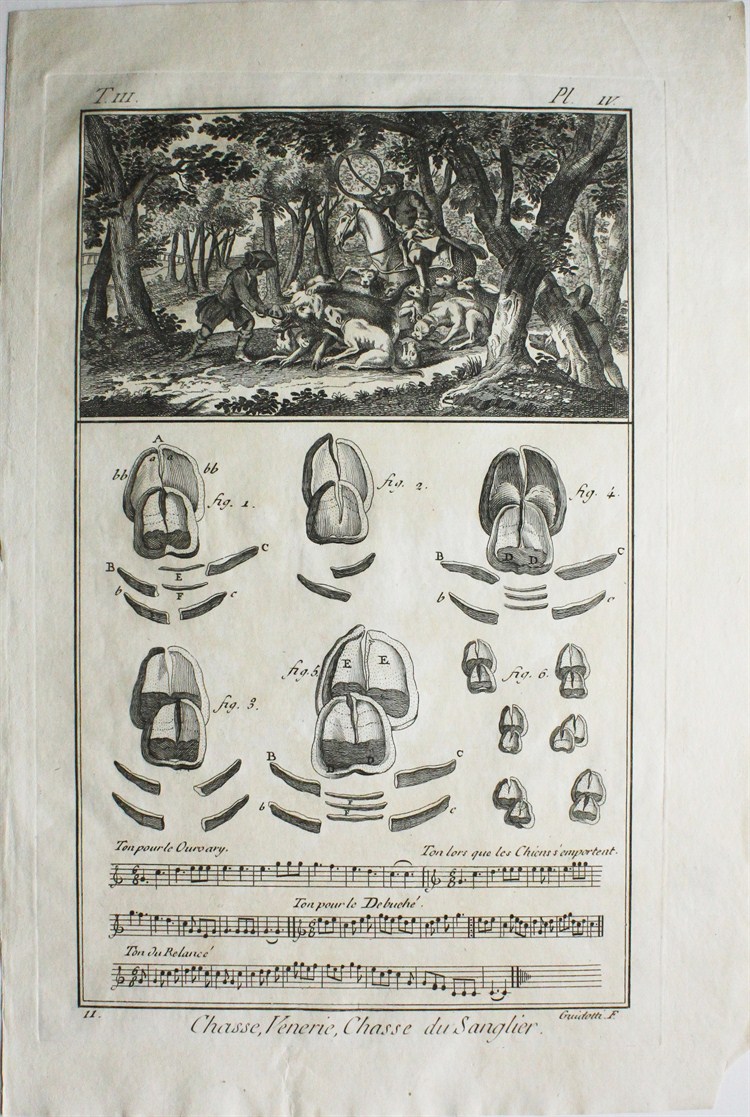 T. III. Pl. IV
A
a a
bb bb
fig. 1.
fig. 2.
fig. 4.
D D
B C
E
F
b c
B C
b c
fig. 3.
fig. 5.
E E
fig. 6.
D D
B C
F
b c
Ton pour le Ourvary. Ton lors que les Chiens s'emportent.
Ton pour le Debuché.
Ton du Relancé
II. Guidotti F.
Chasse, Venerie, Chasse du Sanglier.